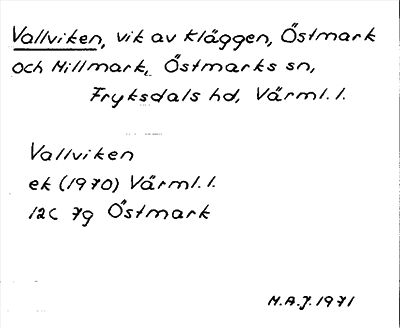 Vallviken, vik av Kläggen, Östmark
och Millmark, Östmarks sn,
Fryksdals hd, Värml. l.
Vallviken
ek (1970) Värml. l.
12C 7g Östmark
M.A.J. 1971